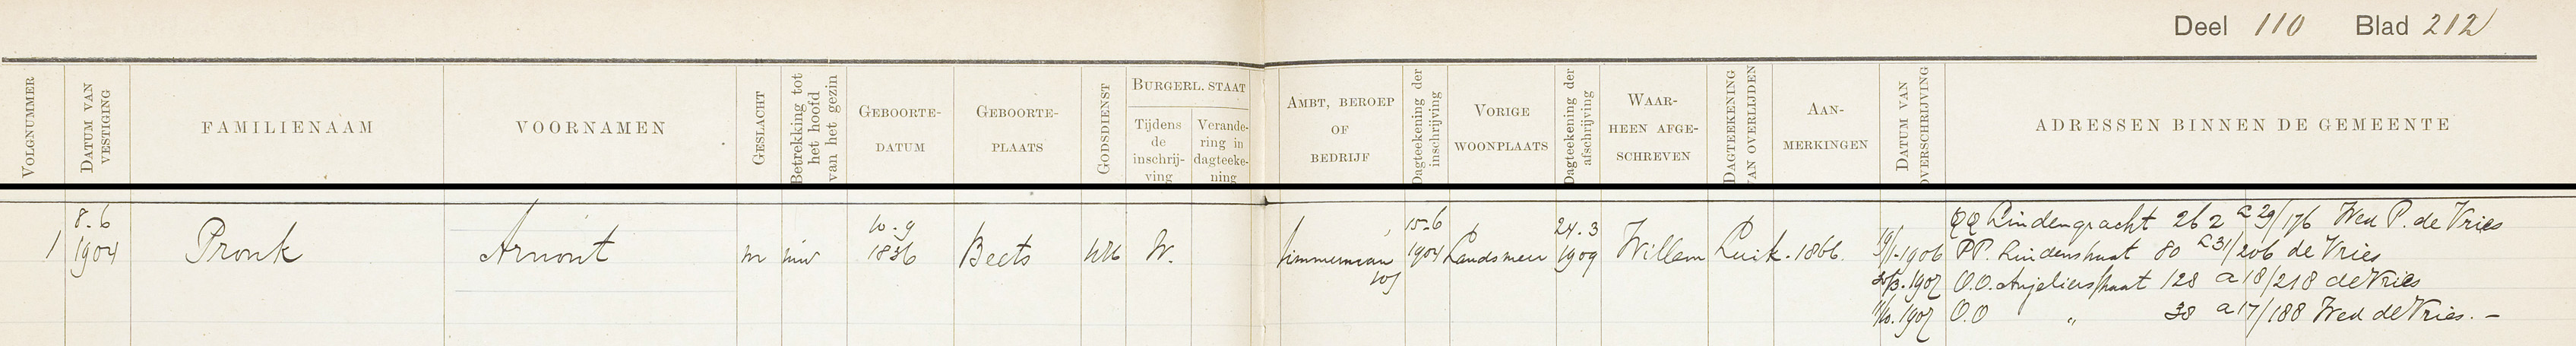 Deel 110 Blad 212
VOLGNUMMER
DATUM VAN VESTIGING
FAMILIENAAM
VOORNAMEN
GESLACHT
Betrekking tot het hoofd van het gezin
GEBOORTE-DATUM
GEBOORTE-PLAATS
GODSDIENST
BURGERL. STAAT
Tijdens de inschrij-ving
Verande-ring in dagteeke-ning
AMBT, BEROEP OF BEDRIJF
Dagteekening der inschrijving
VORIGE WOONPLAATS
Dagteekening der afschrijving
WAAR-HEEN AFGE-SCHREVEN
DAGTEEKENING VAN OVERLIJDEN
AAN-MERKINGEN
DATUM VAN OVERSCHRIJVING
ADRESSEN BINNEN DE GEMEENTE
1
8-6 1904
Pronk
Arnout
m
inw
10-9 1836
Beets
NH
W.
timmerman
15-6 1904
Landsmeer
24.3 1909
Willem Luik. 1866.
QQ Lindengracht 262 a 29/176 Wed P. de Vries
19/1-1906 PP. Lindenstraat 80 a 31/206 de Vries
1907 O.O. Anjeliersstraat 128 a 18/218 de Vries
1907 O.O „ 38 a 17/188 Wed de Vries. -